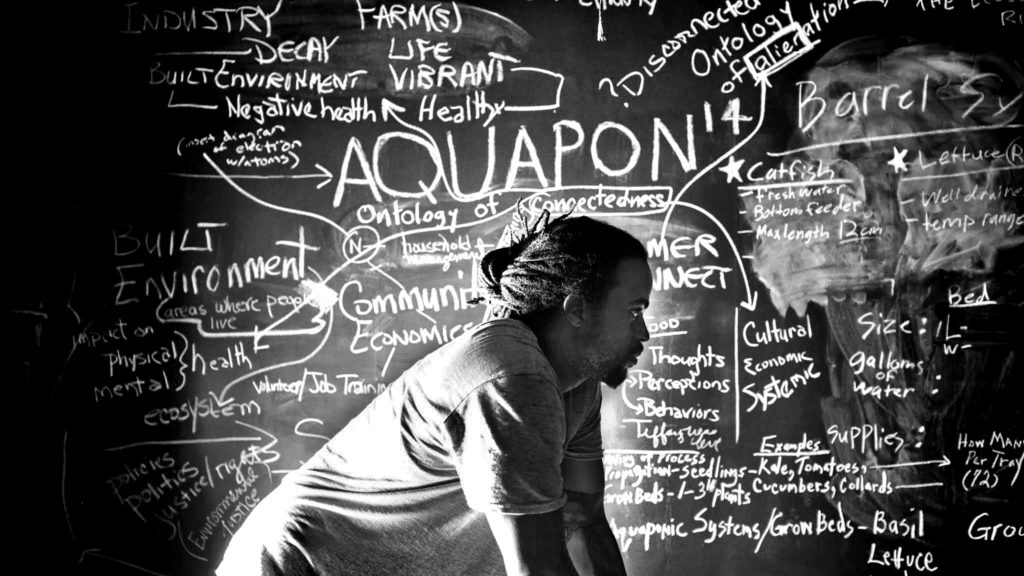 INDUSTRY FARM(S)
DECAY LIFE
BUILT ENVIRONMENT VIBRANT
Negative health Healthy
(inset diagram
of electron
w/atoms)
? Disconnected
Ontology
of alienation
AQUAPON '14
Ontology of Connectedness
N-
household +
management
BUILT
Environment +
(areas where people
live
impact on
physical
mental
health
ecosystem
Communi
Economics
Volunteer/Job Training
policies
politics
justice/rights
(Environmental
Justice
MER
NNECT
OOD
Thoughts
Perceptions
Behaviors
Cultural
Economic
Systemic
Barrel Sy
★ Catfish
- fresh water
- Bottom feeder
- Max length 12cm
★ Lettuce (R
- Well draine
- temp range
Bed
Size: L-
W-
gallons
of
water:
Supplies:
Examples
of Process
-Seedlings - Kale, Tomatoes,
Cucumbers, Collards
How Many
Per Tray
(72)
Grow Beds - 1-3" plants
Aquaponic Systems/Grow Beds - Basil
Lettuce
Grou